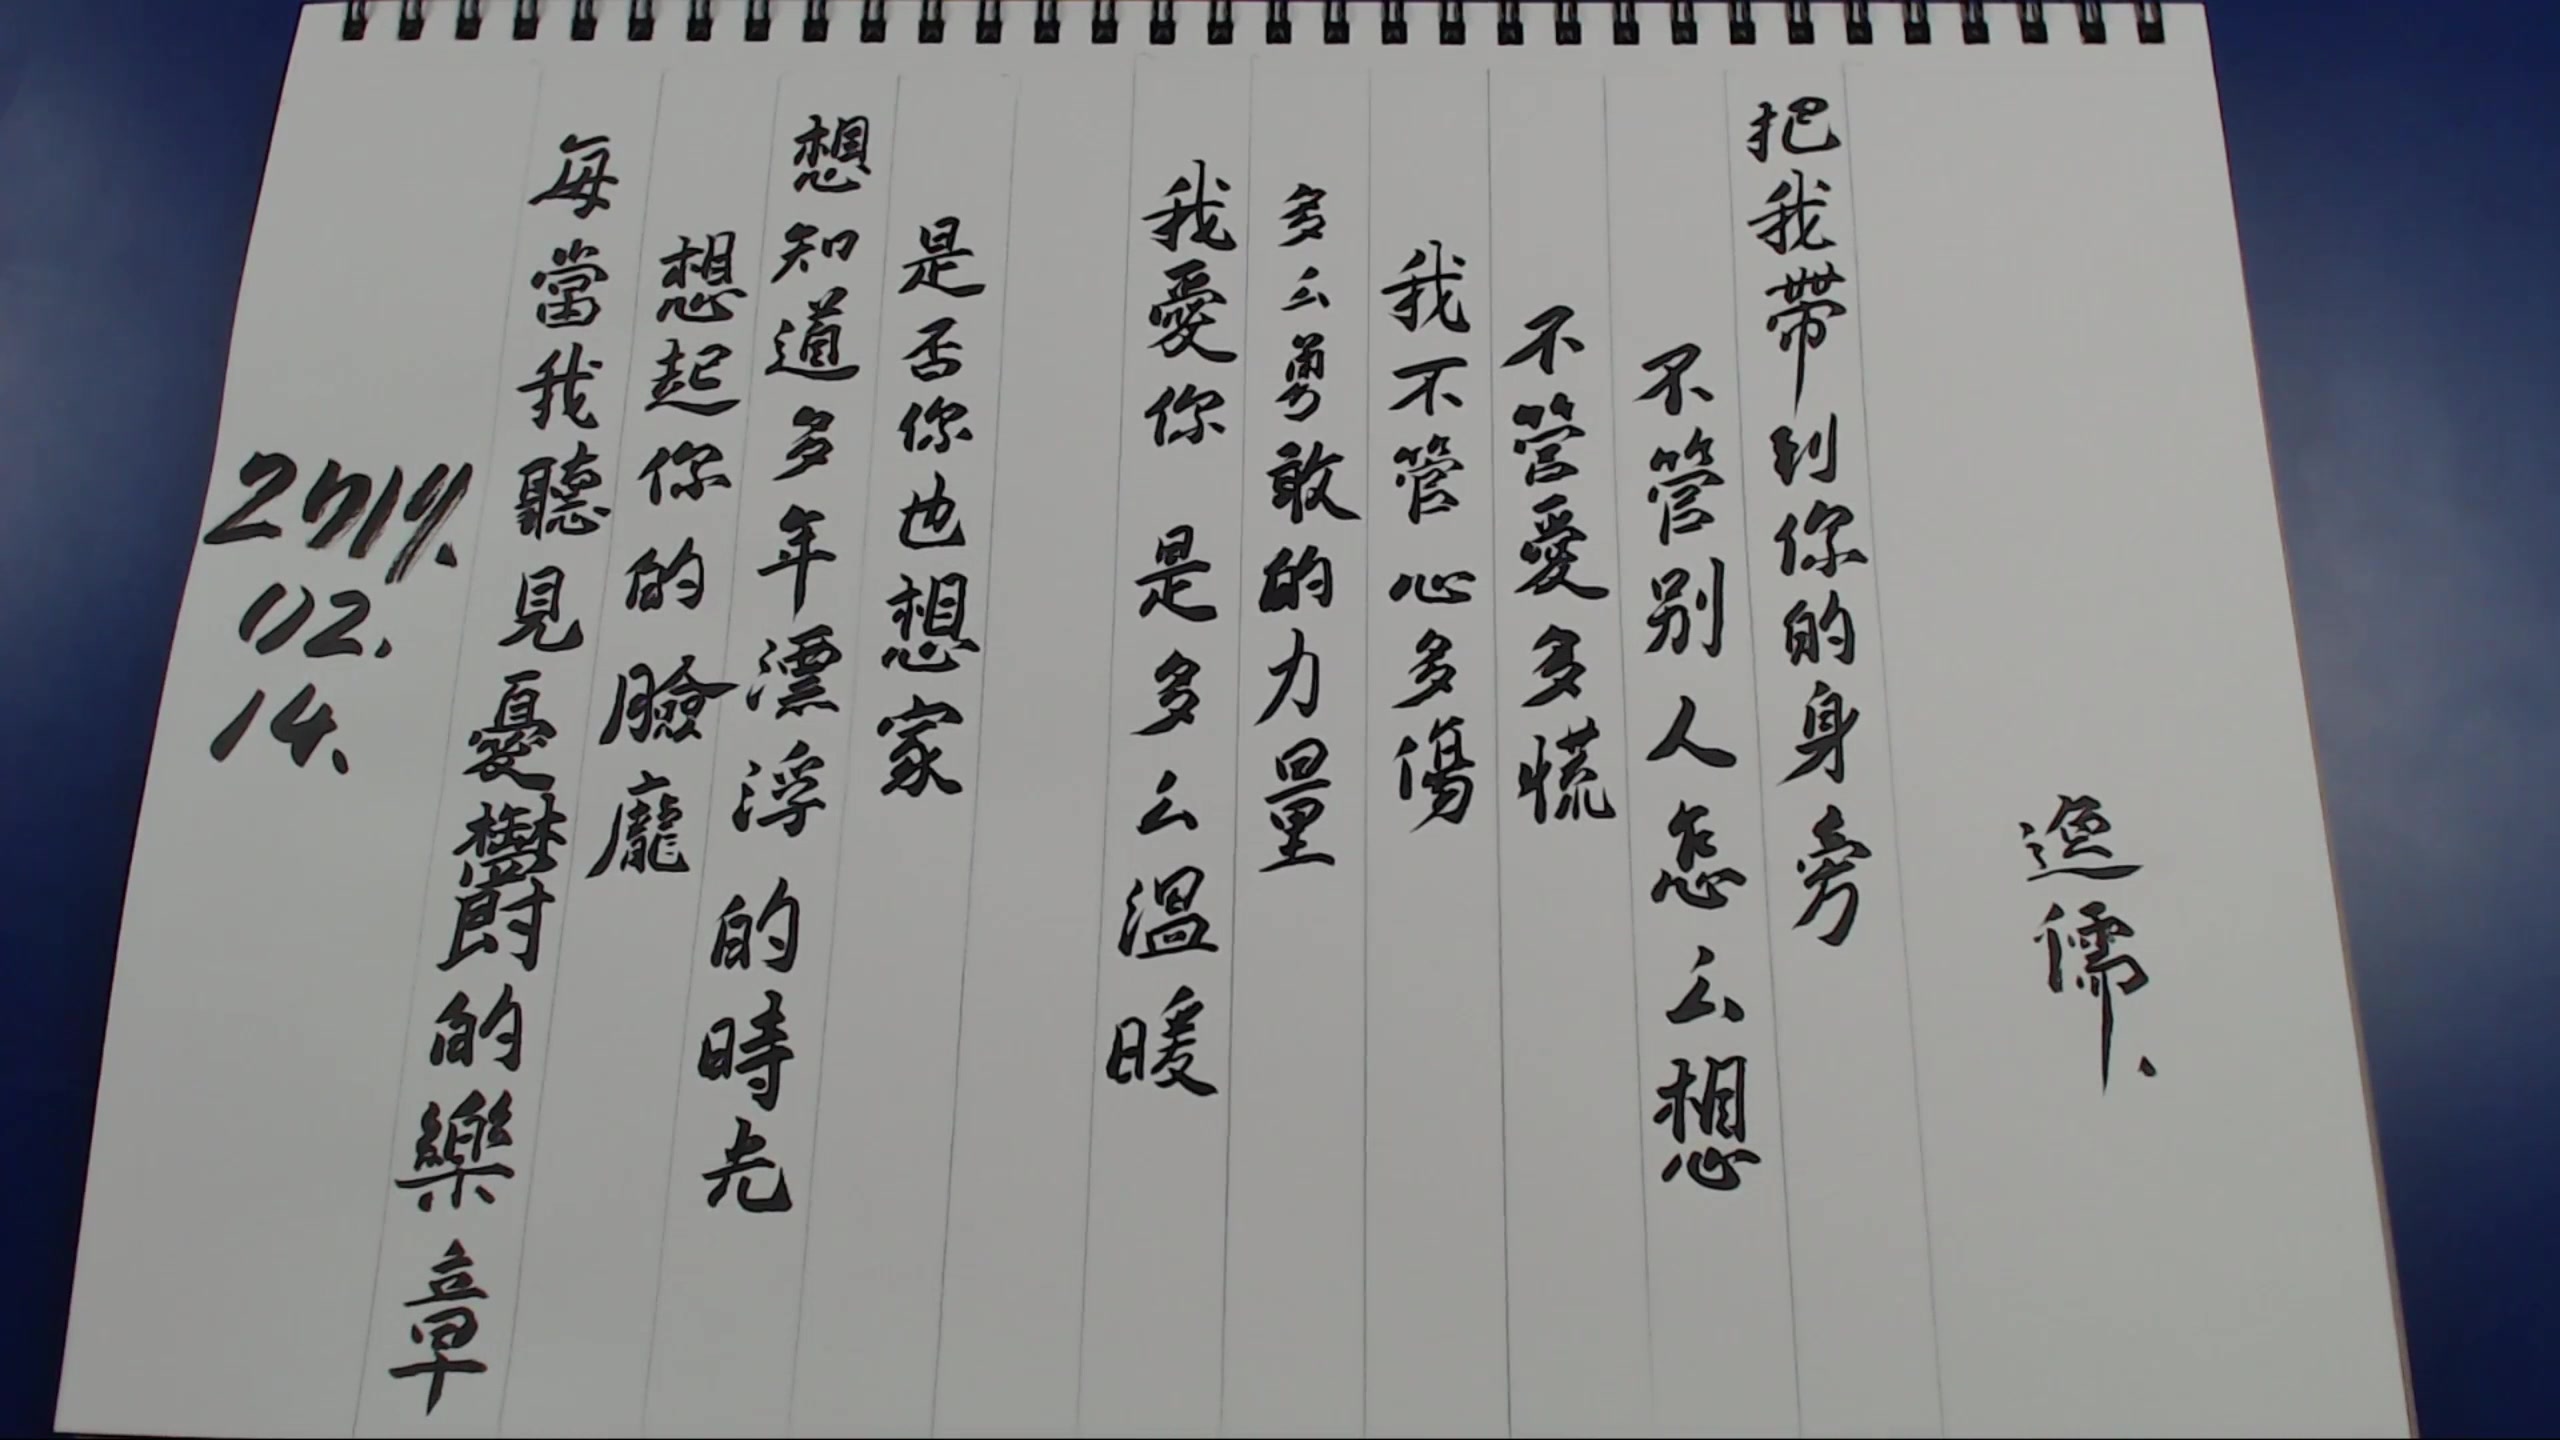 02.
14.
每當我聽見憂鬱的樂章
想起你的臉龐
想知道多年漂浮的時光
是否你也想家
我愛你 是多么溫暖
多么勇敢的力量
我不管心多傷
不管愛多慌
不管别人怎么想
把我帶到你的身旁
逸儒.